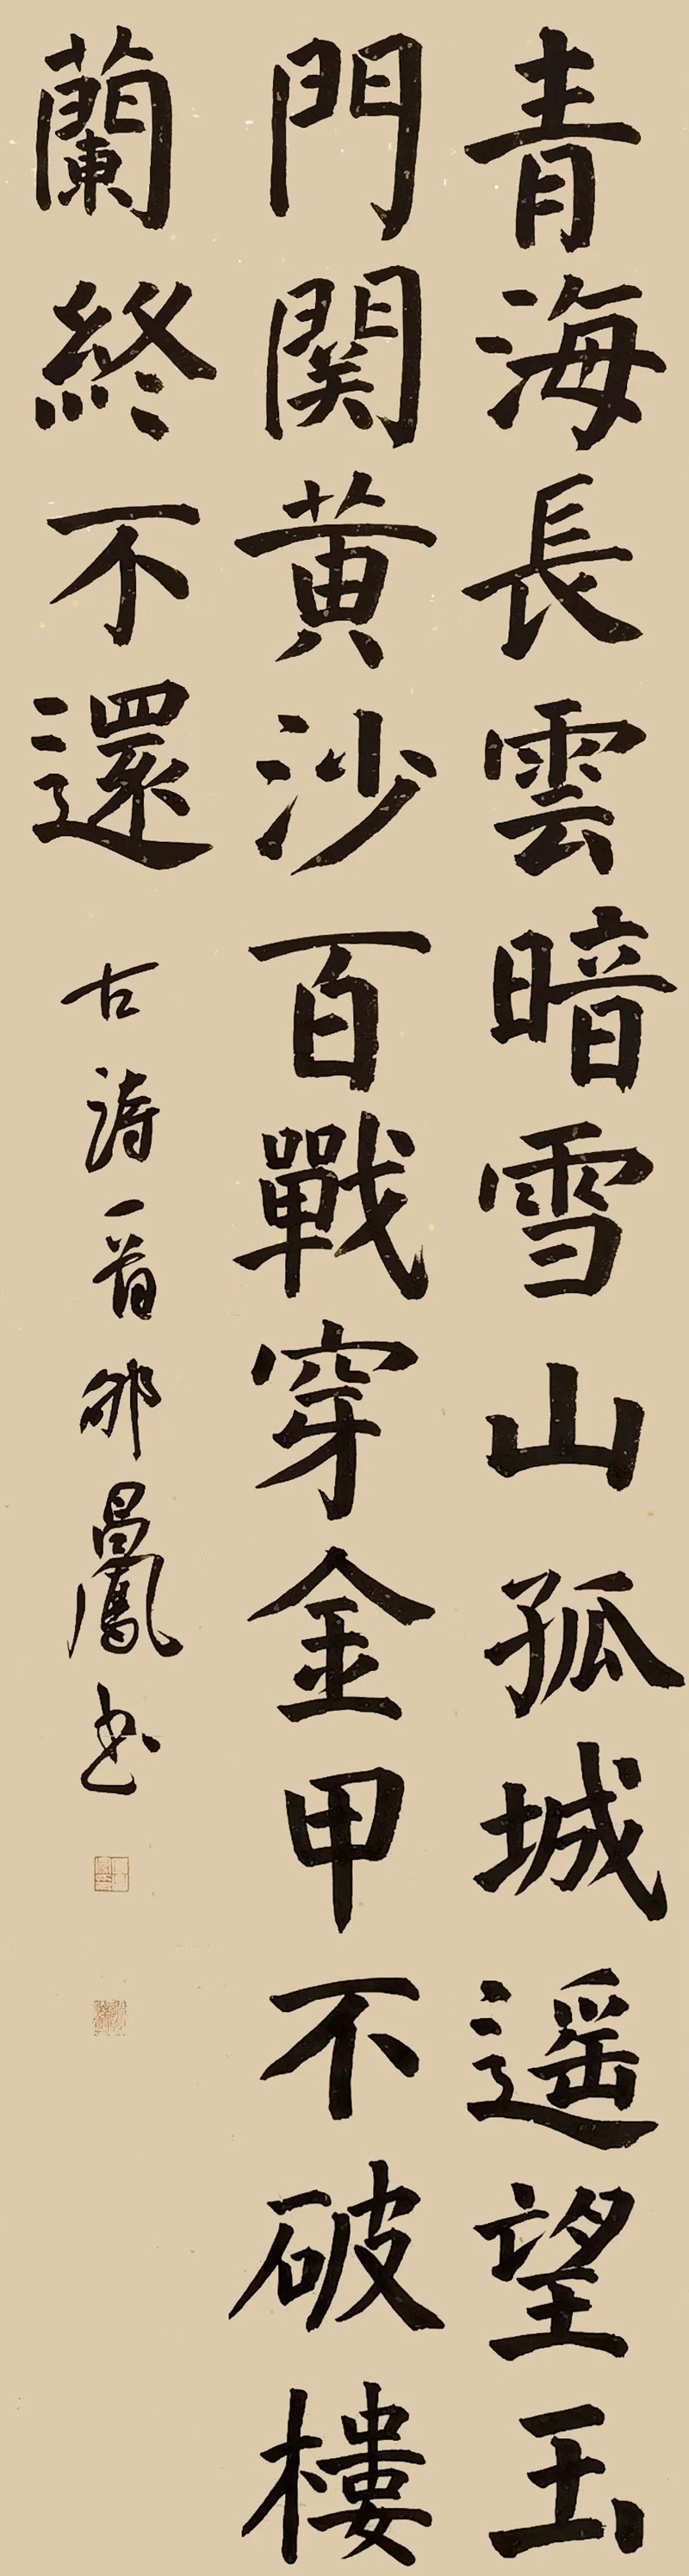 青海長雲暗雪山孤城遥望玉
門関黄沙百戰穿金甲不破樓
蘭終不還
古詩一首 邴昌鳳书